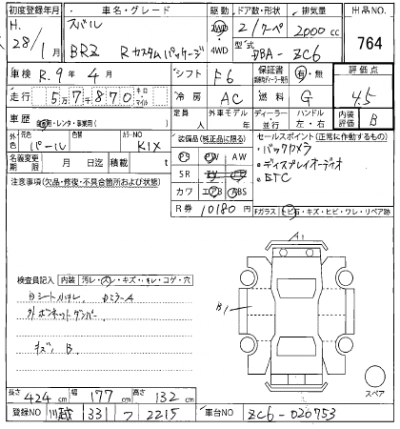 初度登録年月 車名・グレード 駆動 ドア数・形状 排気量 出品NO.
H. 28/1月 スバル BRZ Rカスタムパッケージ 2WD 4WD 2/クーペ 2000cc 764
型式 DBA-ZC6
車検 R.9年4月 シフト F6 保証書 有・無 評価点
走行 5万7千870 キロ・マイル 冷房 AC 燃料 G 4.5
車歴 自家用・レンタ・事業用( ) 定員 人 外車モデル 年 ディーラー 並行 ハンドル 左・右 内装評価 B
外色 元色 パール 色替 カラーNO K1X 装備品(純正品に限る) セールスポイント(正常に作動するもの)
名義変更期限 月 日迄 積載 t PS PW AW ・バックカメラ
注意事項(欠品・修復・不具合箇所および状態) SR ・ディスプレイオーディオ
カワ エアB ABS ・ETC
R券 10180円
Fガラス トビ石・キズ・ヒビ・ワレ・リペア跡
A1
検査員記入 内装 汚レ・スレ・キズ・キレ・コゲ・穴
B1
キズ B
スペア
長さ 424cm 幅 177cm 高さ 132cm
登録NO 川越 331 フ 2215 車台NO ZC6-020753